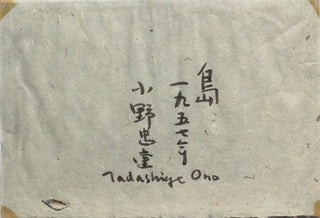 島
一九五七年
小野忠重
Tadashige Ono